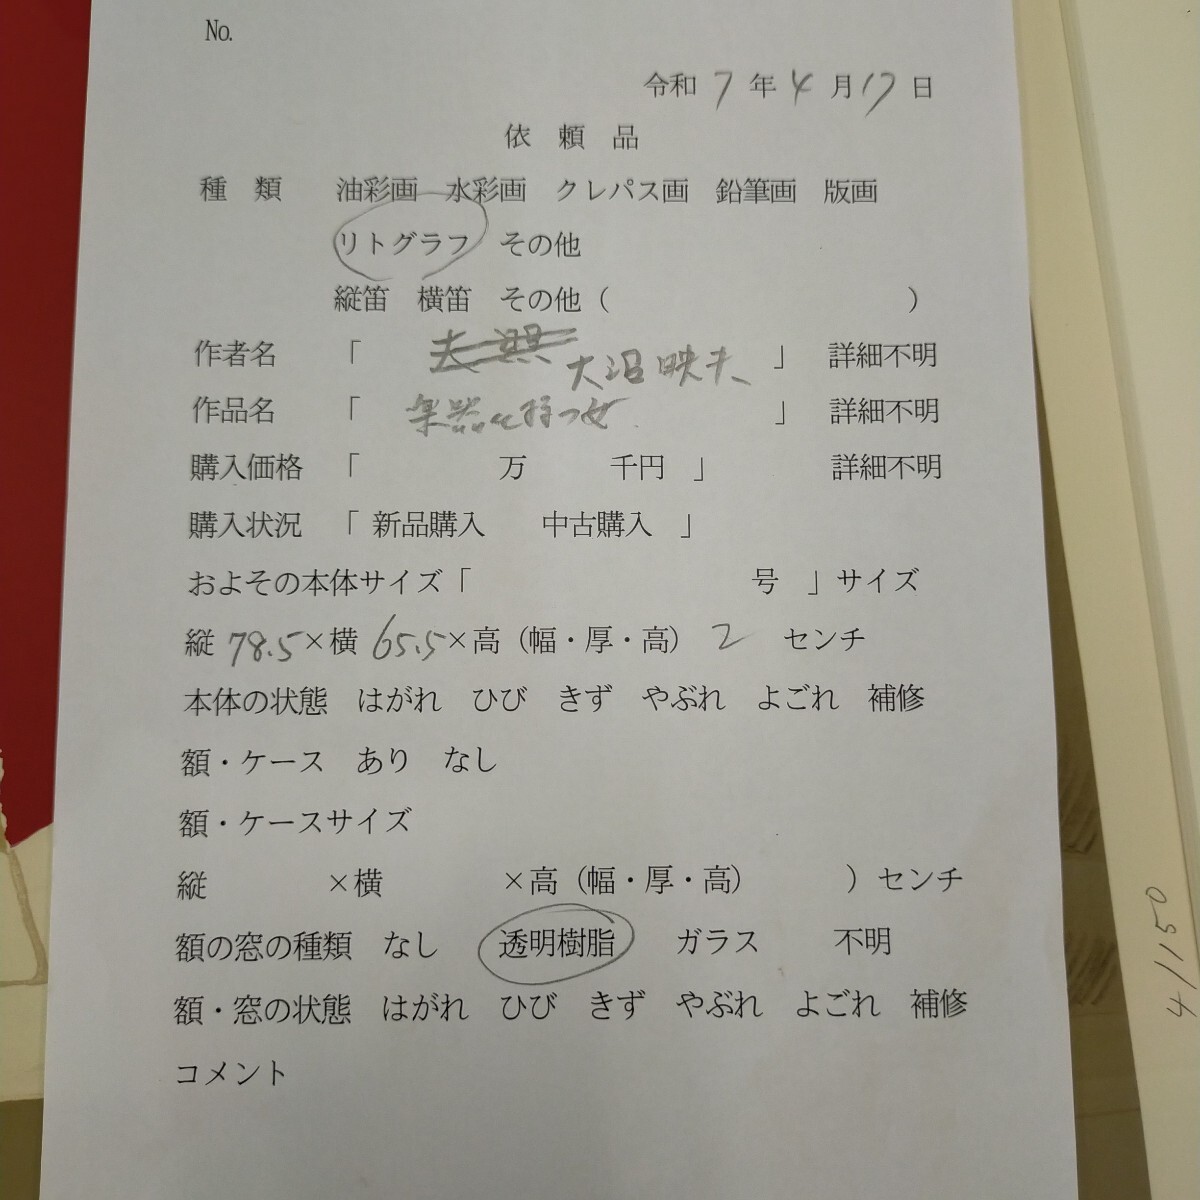 No.
令和 7 年 4 月 17 日
依 頼 品
種 類 油彩画 水彩画 クレパス画 鉛筆画 版画
リトグラフ その他
縦笛 横笛 その他（ ）
作者名 「 大沼映夫 」 詳細不明
作品名 「 楽器を持つ女 」 詳細不明
購入価格 「 万 千円 」 詳細不明
購入状況 「 新品購入 中古購入 」
およその本体サイズ「 号 」サイズ
縦 78.5 ×横 65.5 ×高（幅・厚・高） 2 センチ
本体の状態 はがれ ひび きず やぶれ よごれ 補修
額・ケース あり なし
額・ケースサイズ
縦 ×横 ×高（幅・厚・高） ）センチ
額の窓の種類 なし 透明樹脂 ガラス 不明
額・窓の状態 はがれ ひび きず やぶれ よごれ 補修
コメント
4/150